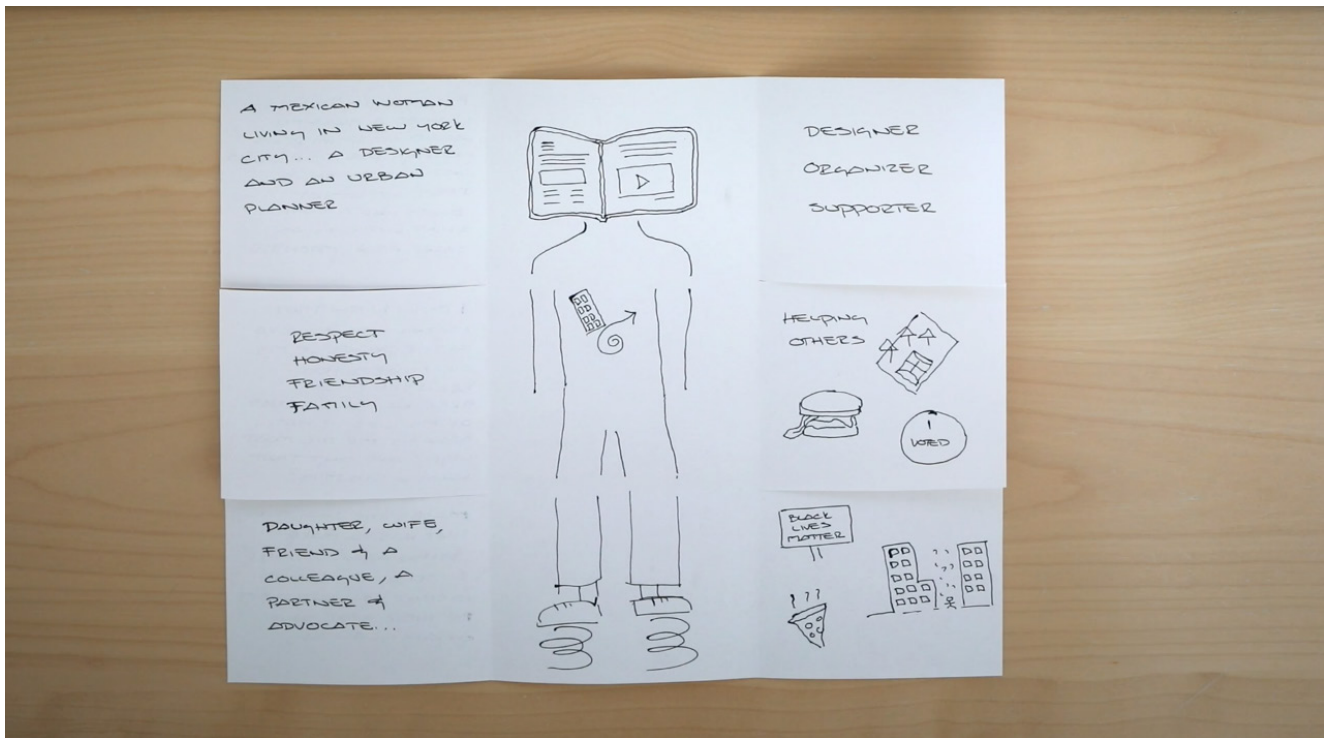 A MEXICAN WOMAN
LIVING IN NEW YORK
CITY... A DESIGNER
AND AN URBAN
PLANNER
RESPECT
HONESTY
FRIENDSHIP
FAMILY
DAUGHTER, WIFE,
FRIEND & A
COLLEAGUE, A
PARTNER &
ADVOCATE...
DESIGNER
ORGANIZER
SUPPORTER
HELPING
OTHERS
I
VOTED
BLACK
LIVES
MATTER